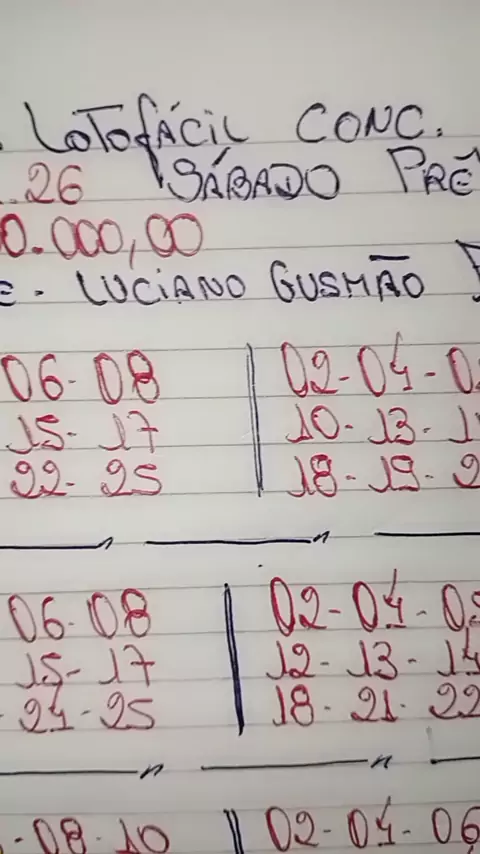 . LOTOFÁCIL CONC.
.26 SÁBADO PRÊ
0.000,00
E. LUCIANO GUSMÃO
06-08 02-04-0
15-17 10-13-1
22-25 18-19-2
06-08 02-04-0
15-17 12-13-14
-24-25 18-21-22
-08-10 02-04-06